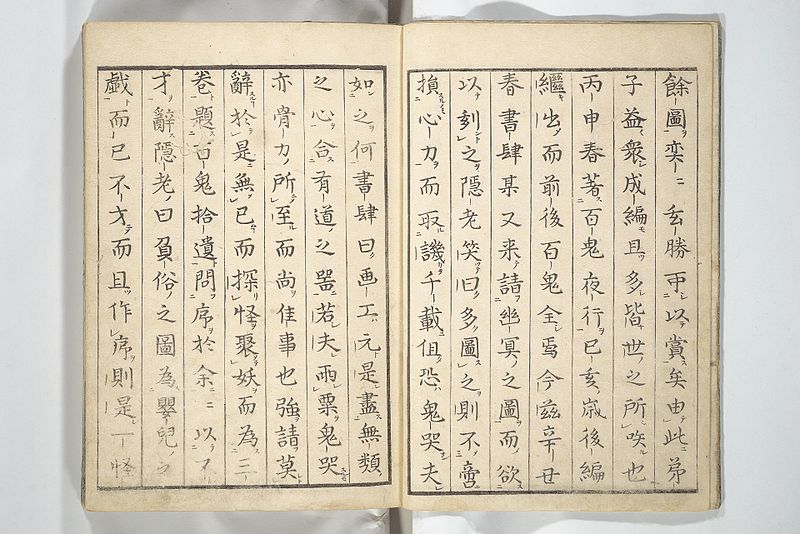 餘圖奕〻玄勝可以賞矣由此弟
子益衆成編且多皆世之所咲也
丙申春著百鬼夜行已亥歳後編
繼出而前後百鬼全焉今兹辛丑
春書肆某又来請幽冥之圖而欲
以刻之隠老笑曰多圖之則不啻
損心力而取譏千載但恐鬼哭夫
如之何書肆曰画工元是盡無類
之心合有道之器若夫雨粟鬼哭
亦骨力所至而尚佳事也強請莫
辭於是無已而探怪聚妖而為三
巻題百鬼拾遺問序於余〻以不
才辭隠老曰負俗之圖為嬰兒之
戯而已不才而且作序則是一怪